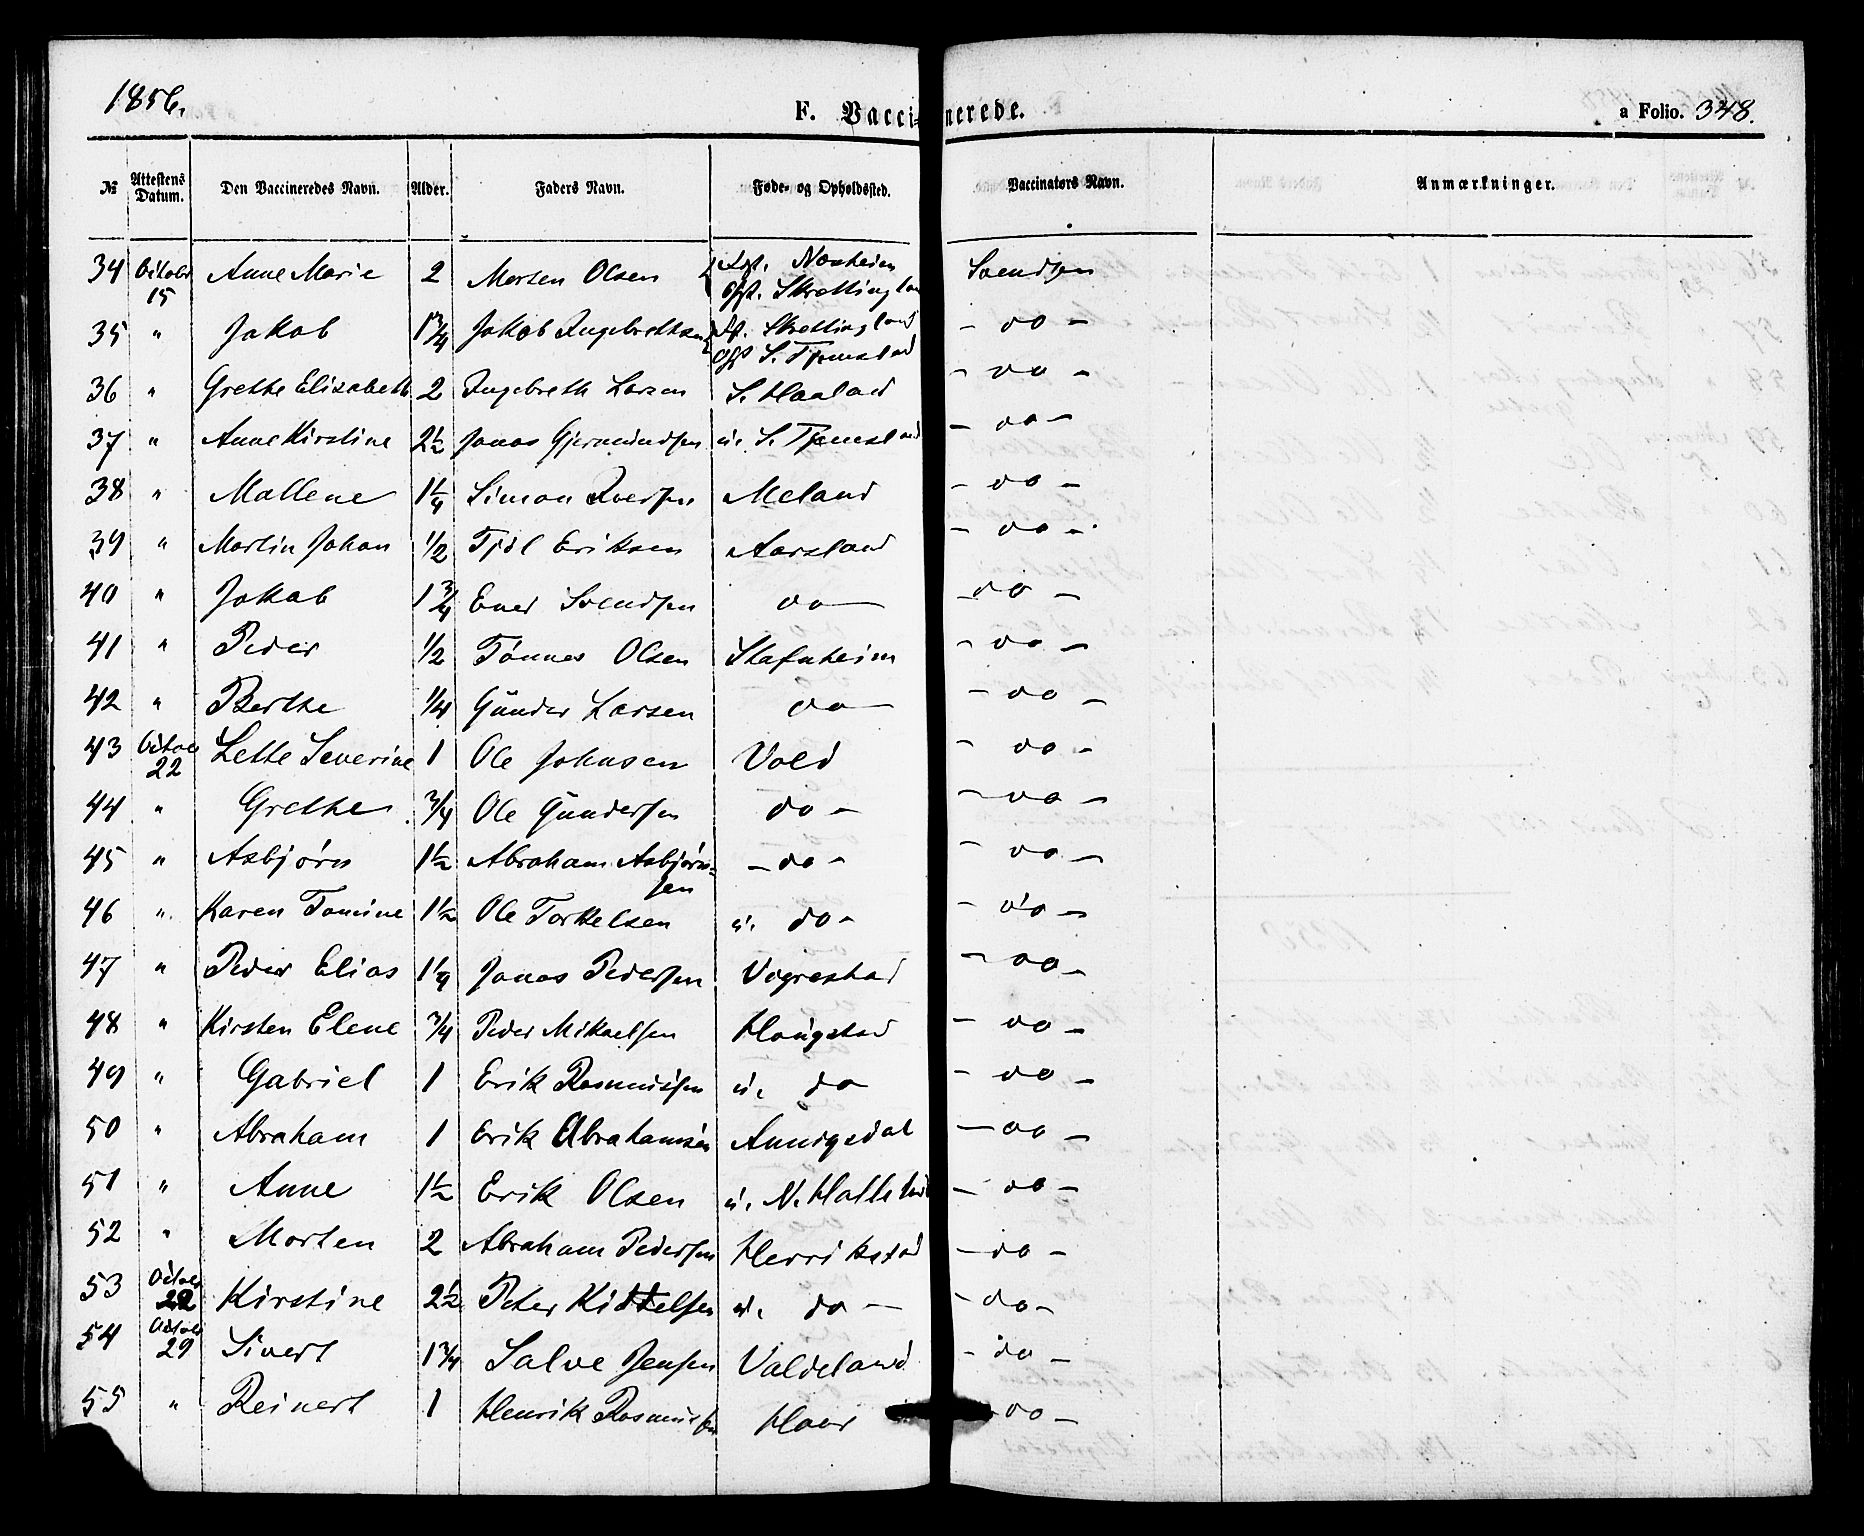 1856.
F. Vaccinerede.
a Folio. 348.
№ Attestens Datum. Den Vaccineredes Navn. Alder. Faders Navn. Føde- og Opholdssted. Vaccinators Navn. Anmærkninger.
34 Octobr 15 Anne Marie 2 Morten Olsen Fst. Nærheim Svendsen
Opst. Skrettingland
35 " Jakob 1 3/4 Jakob Ingebrethsen Fst. Skrettingland - do -
Opst S. Tjemsland
36 " Grethe Elisabeth 2 Ingebreth Larsen S. Haaland - do -
37 " Anne Kirstine 2 1/2 Jonas Gjermundsen u. S. Tjemsland - do -
38 " Mallene 1 1/4 Simon Iversen Meland - do -
39 " Martin Johan 1/2 Tjöl Eriksen Aarsland - do -
40 " Jakob 1 3/4 Ener Svendsen do - do -
41 " Peder 1/2 Tönnes Olsen Stafnheim - do -
42 " Berthe 1/4 Gunder Larsen do - do -
43 Octobr 22 Lette Severine 1 Ole Johnsen Vold - do -
44 " Grethe 3/4 Ole Gundersen do - - do -
45 " Asbjørn 1 1/2 Abraham Asbjørn- - do - - do -
sen
46 " Karen Tomine 1 1/2 Ole Torkelsen u. do - - do -
47 " Peder Elias 1 1/4 Jonas Pedersen Vigrestad - do -
48 " Kirsten Elene 3/4 Peder Mikaelsen Haugstad - do -
49 " Gabriel 1 Erik Rasmussen u. do - do -
50 " Abraham 1 Erik Abrahamsen Anuigsdal - do -
51 " Anne 1 1/2 Erik Olsen u. N. - do -
52 " Morten 2 Abraham Pedersen Herrikstad - do -
53 Octobr 22 Kirstine 2 1/2 Peter Kittelsen u. do - - do -
54 Octobr 29 Sivert 1 3/4 Salve Jensen Valdeland - do -
55 " Reinert 1 Henrik Rasmussen Haar - do -